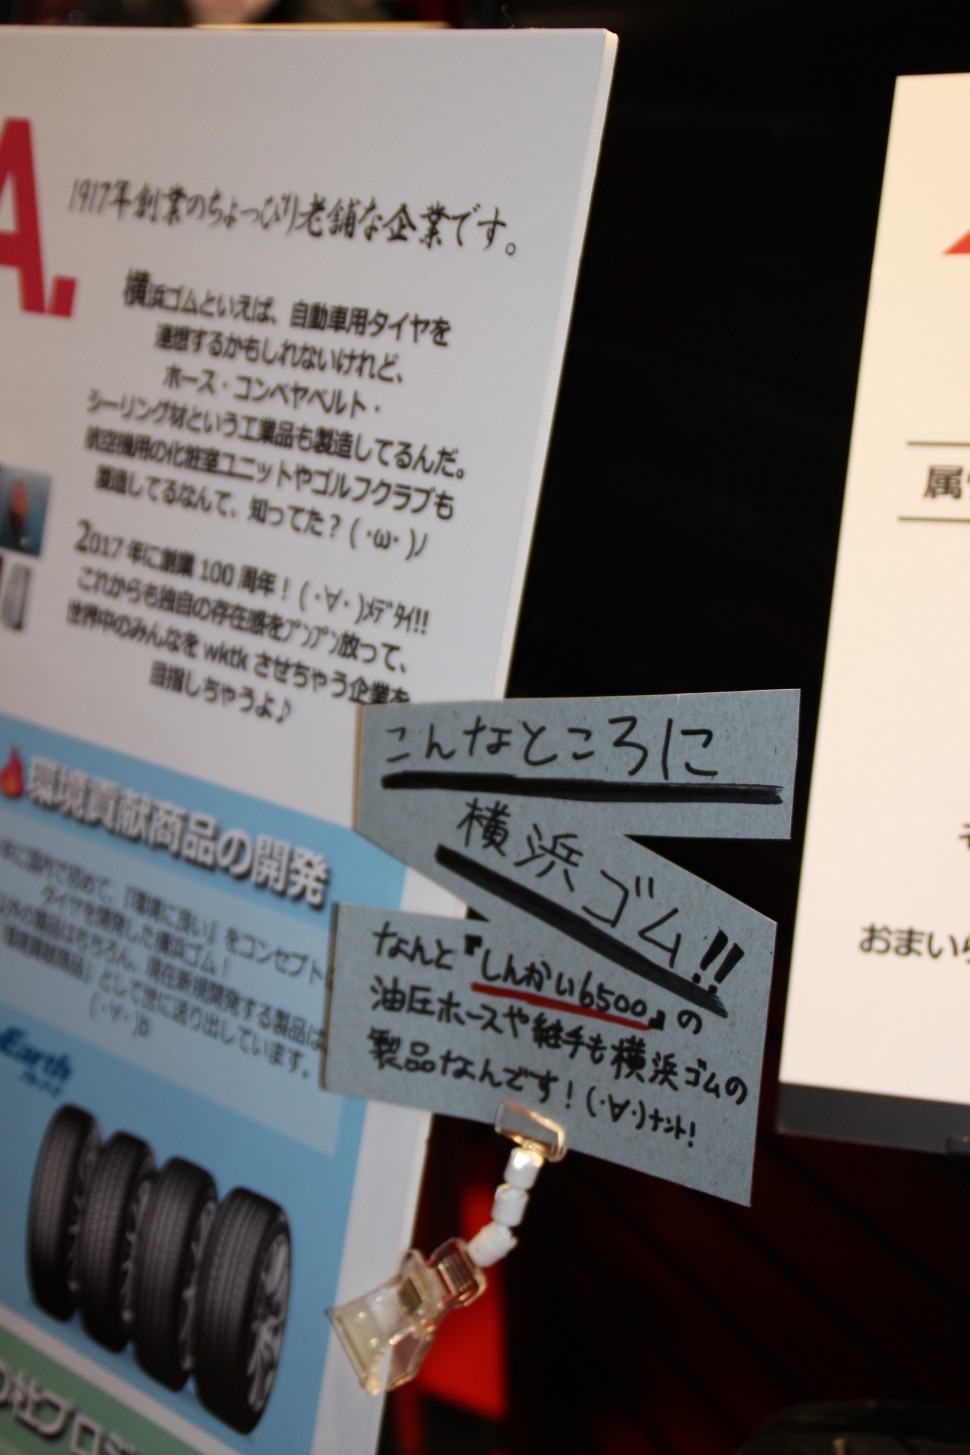 A.
1917年創業のちょっぴり老舗な企業です。
横浜ゴムといえば、自動車用タイヤを
連想するかもしれないけれど、
ホース・コンベヤベルト・
シーリング材という工業品も製造してるんだ。
航空機用の化粧室ユニットやゴルフクラブも
製造してるなんて、知ってた?(・ω・)ノ
2017年に創業100周年!(・∀・)ﾒﾃﾞﾀｲ!!
これからも独自の存在感をﾌﾟﾝﾌﾟﾝ放って、
世界中のみんなを wktk させちゃう企業を
目指しちゃうよ♪
環境貢献商品の開発
『環境に良い』をコンセプト
タイヤを開発した横浜ゴム!
以外の製品はもちろん、現在新規開発する製品は
環境貢献商品」として世に送り出しています。
(・∀・)b
Earth
の杜プロジ
こんなところに
横浜ゴム!!
なんと『しんかい6500』の
油圧ホースや継手も横浜ゴムの
製品なんです!(・∀・)ﾅﾝﾄ!
属
そ
おまいら